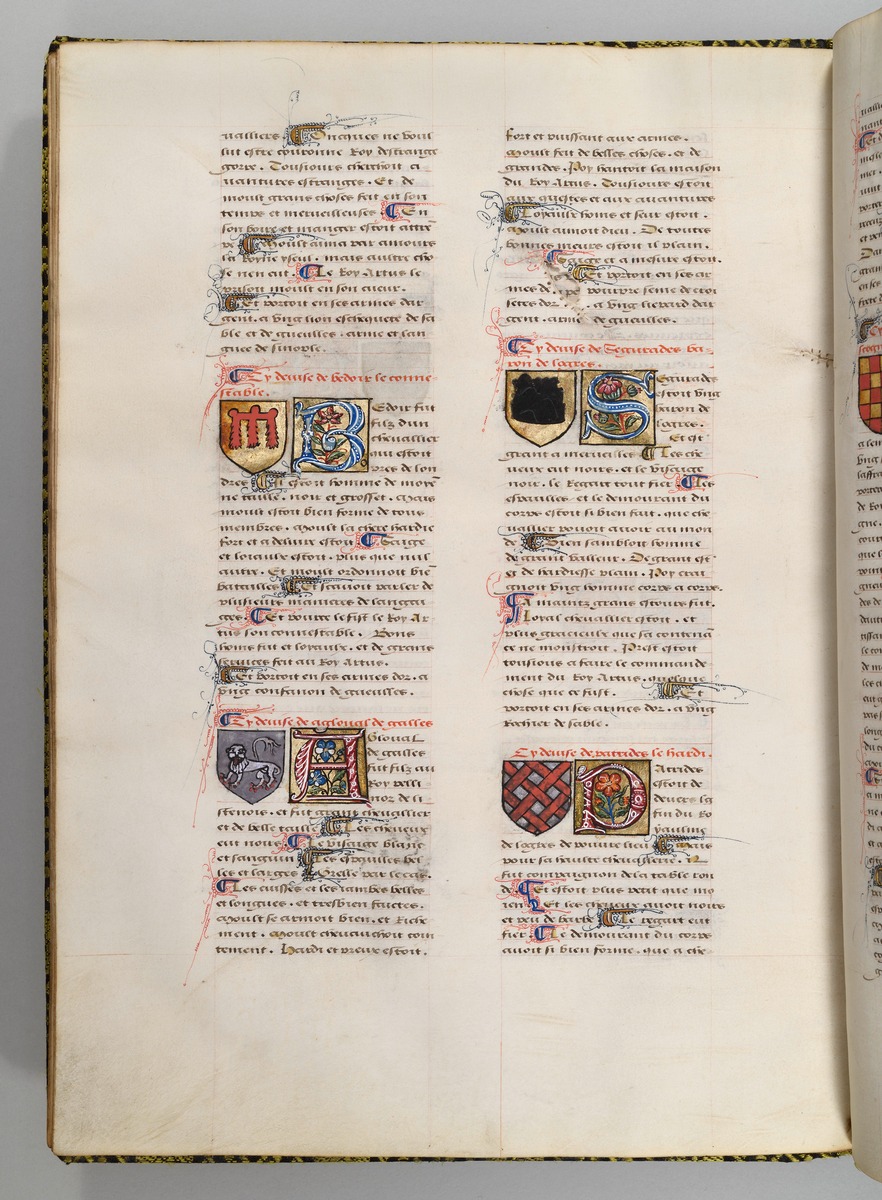 valliers. Oncques ne voul
lut estre couronne Roy destrange
gorre. Tousiours cherchoit a
uantures estranges. Et de
moult grans choses fait en son
temps et merueilleuses. En
son boire et manger estoit attrē
pe. Moult aima par amours
la Royne yseul. mais aultre cho
se nen eut. Le Roy Artus le
prison moult en son cueur.
Et portoit en ses armes dar
gent. a vng lion eschequete de sa
ble et de gueulles. arme et lan
gue de sinople.
Cy deuise de bedoir le conne-
stable.
Bedoir fut
filz dun
cheuallier
qui estoit
pres de lon
dres. Il estoit homme de moyē
ne taille. noir et grosset. Mais
moult estoit bien forme de tous
membres. Moult la chere hardie
fort et a deliure estoit. Saige
et loiaulx estoit. plus que nul
autre. Et moult ordonnoit biē
batailles. Et scauoit parler de
plusieurs manieres de langai
ges. Et pource le fist le Roy Ar
tus son connestable. Bons
homs fut et loyaulx. et de grans
seruices feit au Roy Artus.
Et portoit en ses armes dor. a
vng confanon de gueulles.
Cy deuise de agloual de galles
Agloual
de galles
fut filz au
Roy pelli
nor de li
stenois. et fut grant cheuallier
et de belle taille. Les cheueux
eut noirs. Le visaige blanc
et sanguin. Les espaulles bel
les et larges. Grelle par le cas.
Les cuisses et les iambes belles
et longues. et tresbien faictes.
Moult se armoit bien. et Riche
ment. Moult cheuauchoit coin
tement. Hardi et preux estoit.
fort et puissant aux armes.
Moult fait de belles choses. et de
grandes. Poy hantoit la maison
du Roy Artus. Tousiours estoit
aux questes et aux auantures
Loyaulx homs et seur estoit.
Moult aimoit dieu. De toutes
bonnes meurs estoit il plain.
Saige et a mesure estoit.
Et portoit en ses ar
mes de pourpre seme de croi
setes dor. a vng liepard dar
gent. arme de gueulles.
Cy deuise de Segurades ba-
ron de logres.
Segurades
estoit vng
baron de
logres.
Et est
grant a merueilles. Les che
ueux eut noirs. et le visaige
noir. le Regart tout fier. Les
espaulles et le demourant du
corps estoit si bien fait. que che
uallier pouoit auoir au mon
de. Bien sembloit homme
de grant valleur. De grant est
et de hardiesse plain. Poy crai
gnoit vng homme corps a corps.
A maintz grans estours fut.
Loyal cheuallier estoit. et
plus gracieulx que sa contenā
ce ne monstroit. Prest estoit
tousiours a faire le commande
ment du Roy Artus. quelque
chose que ce fust. Et
portoit en ses armes dor. a vng
Rochier de sable.
Cy deuise de patrides le hardi.
Patrides
estoit de
deuers la
fin du Ro
yaulme
de logres de poure lieu. Mais
pour sa haulte cheuallerie. Il
fut compaignon de la table ron
de. Et estoit plus petit que mo
ien. Et les cheueux auoit noirs
et peu de barbe. Le regart eut
fier. Le demourant du corps
auoit si bien forme. que a che